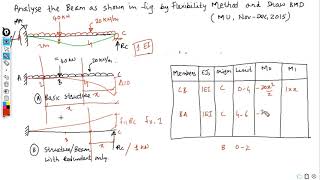 Analyse the Beam as shown in fig by flexibility Method and draw BMD
(MU, Nov-Dec, 2015)
40KN
20KN/m
A
B
C
2m
4
RC
1 EI
40KN
20KN/m
A
B
C
Δ10
(A) Basic structure
f11·RC
f11 × 1
C
(B) Structure/Beam
with redundant only.
RC
1 KN
Members EIs Origin Limit Mo M1
CB 1EI C 0-4 -20x²/2 1×x
BA 1EI C 4-6 -20
B 0-2